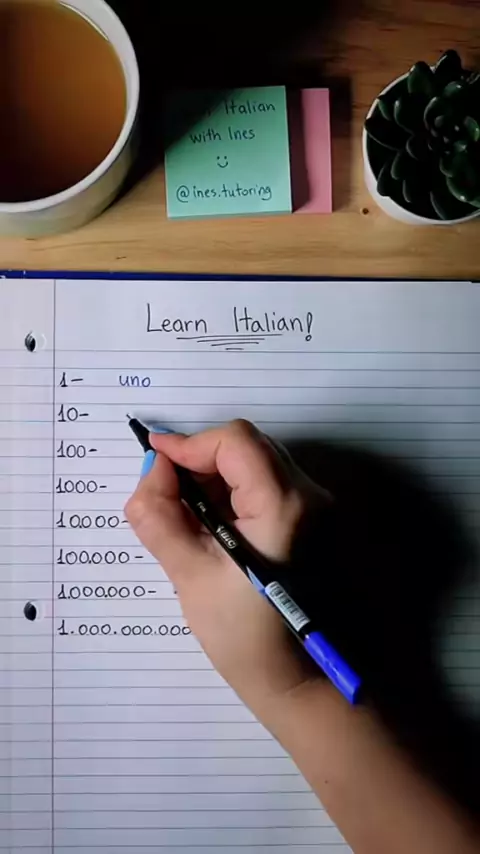 Italian
with Ines
:)
@ines.tutoring
Learn Italian!
1- uno
10-
100-
1000-
10.000-
100.000-
1.000.000-
1.000.000.000
BIC